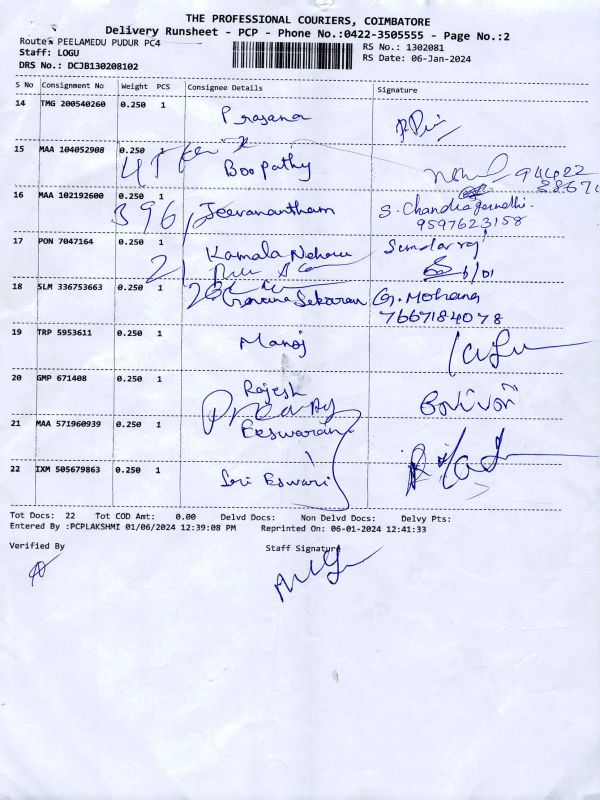 THE PROFESSIONAL COURIERS, COIMBATORE
Delivery Runsheet - PCP - Phone No.:0422-3505555 - Page No.:2
Route: PEELAMEDU PUDUR PC4
RS No.: 1302081
Staff: LOGU
RS Date: 06-Jan-2024
DRS No.: DCJB130208102
S No Consignment No Weight PCS Consignee Details Signature
14 TMG 200540260 0.250 1 Prasana
15 MAA 104052908 0.250 1 Boopathy
16 MAA 102192600 0.250 1 Jeevanantham S. Chandragandhi.
396 9597623158
17 PON 7047164 0.250 1 Kamala Nehru Sundar raj
18 SLM 336753663 0.250 1 Gnana Sekaran G. Mohana
7667184078
19 TRP 5953611 0.250 1 Manoj
20 GMP 671408 0.250 1 Rajesh
21 MAA 571960939 0.250 1 Eeswaran
22 IXM 505679863 0.250 1 Sri Eswari
Tot Docs: 22 Tot COD Amt: 0.00 Delvd Docs: Non Delvd Docs: Delvy Pts:
Entered By :PCPLAKSHMI 01/06/2024 12:39:08 PM Reprinted On: 06-01-2024 12:41:33
Verified By Staff Signature